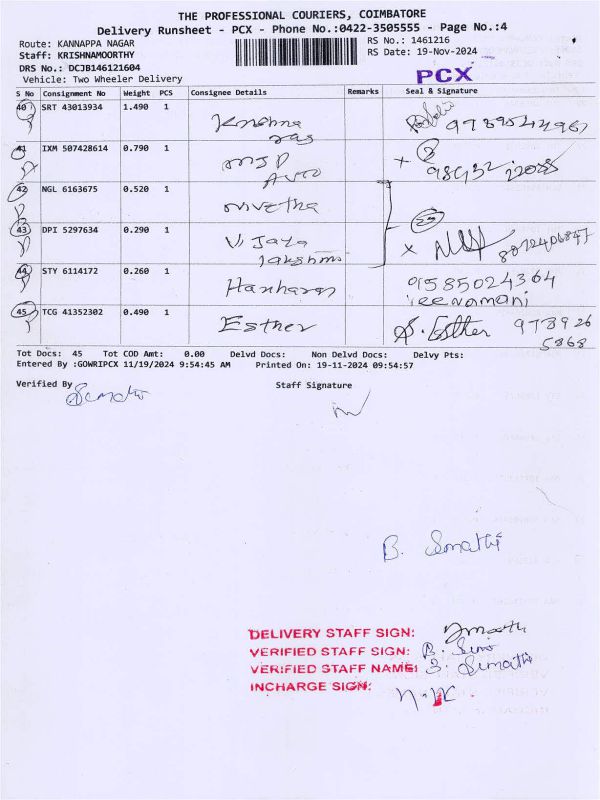 THE PROFESSIONAL COURIERS, COIMBATORE
Delivery Runsheet - PCX - Phone No.:0422-3505555 - Page No.:4
Route: KANNAPPA NAGAR
RS No.: 1461216
Staff: KRISHNAMOORTHY
RS Date: 19-Nov-2024
DRS No.: DCJB146121604
Vehicle: Two Wheeler Delivery
PCX
S No Consignment No Weight PCS Consignee Details Remarks Seal & Signature
40 SRT 43013934 1.490 1 Krishna
41 IXM 507428614 0.790 1 MJP Auto
42 NGL 6163675 0.520 1 nivetha
43 DPI 5297634 0.290 1 Vijaya lakshmi 8072406847
44 STY 6114172 0.260 1 Hariharan 9585024364 veeramani
45 TCG 41352302 0.490 1 Esther S. Esther 978926 5868
Tot Docs: 45 Tot COD Amt: 0.00 Delvd Docs: Non Delvd Docs: Delvy Pts:
Entered By :GOWRIPCX 11/19/2024 9:54:45 AM Printed On: 19-11-2024 09:54:57
Verified By
Staff Signature
B. Sumathi
DELIVERY STAFF SIGN:
VERIFIED STAFF SIGN:
VERIFIED STAFF NAME: B. Sumathi
INCHARGE SIGN: